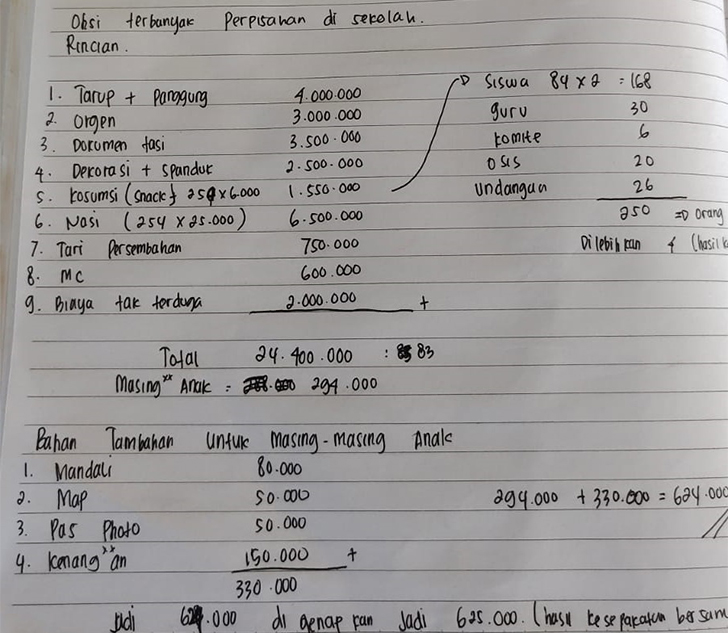 Obsi terbanyak Perpisahan di sekolah.
Rincian.
1. Tarup + Panggung 4.000.000
2. Orgen 3.000.000
3. Dokumen tasi 3.500.000
4. Dekorasi + Spanduk 2.500.000
5. Kosumsi (Snack) 254 x 6.000 1.550.000
6. Nasi (254 x 25.000) 6.500.000
7. Tari Persembahan 750.000
8. MC 600.000
9. Biaya tak terduga 2.000.000 +
Siswa 84 x 2 = 168
guru 30
komite 6
OSIS 20
Undangan 26
250 => Orang
Di lebih kan 4 (hasil k
Total 24.400.000 : 83
Masing** Anak = 294.000
Bahan Tambahan Untuk Masing-masing Anak
1. Mandali 80.000
2. Map 50.000
3. Pas Photo 50.000
4. Kenang**an 150.000 +
330.000
294.000 + 330.000 = 624.000
Jadi 624.000 di genap kan Jadi 625.000. (hasil kesepakatan bersam